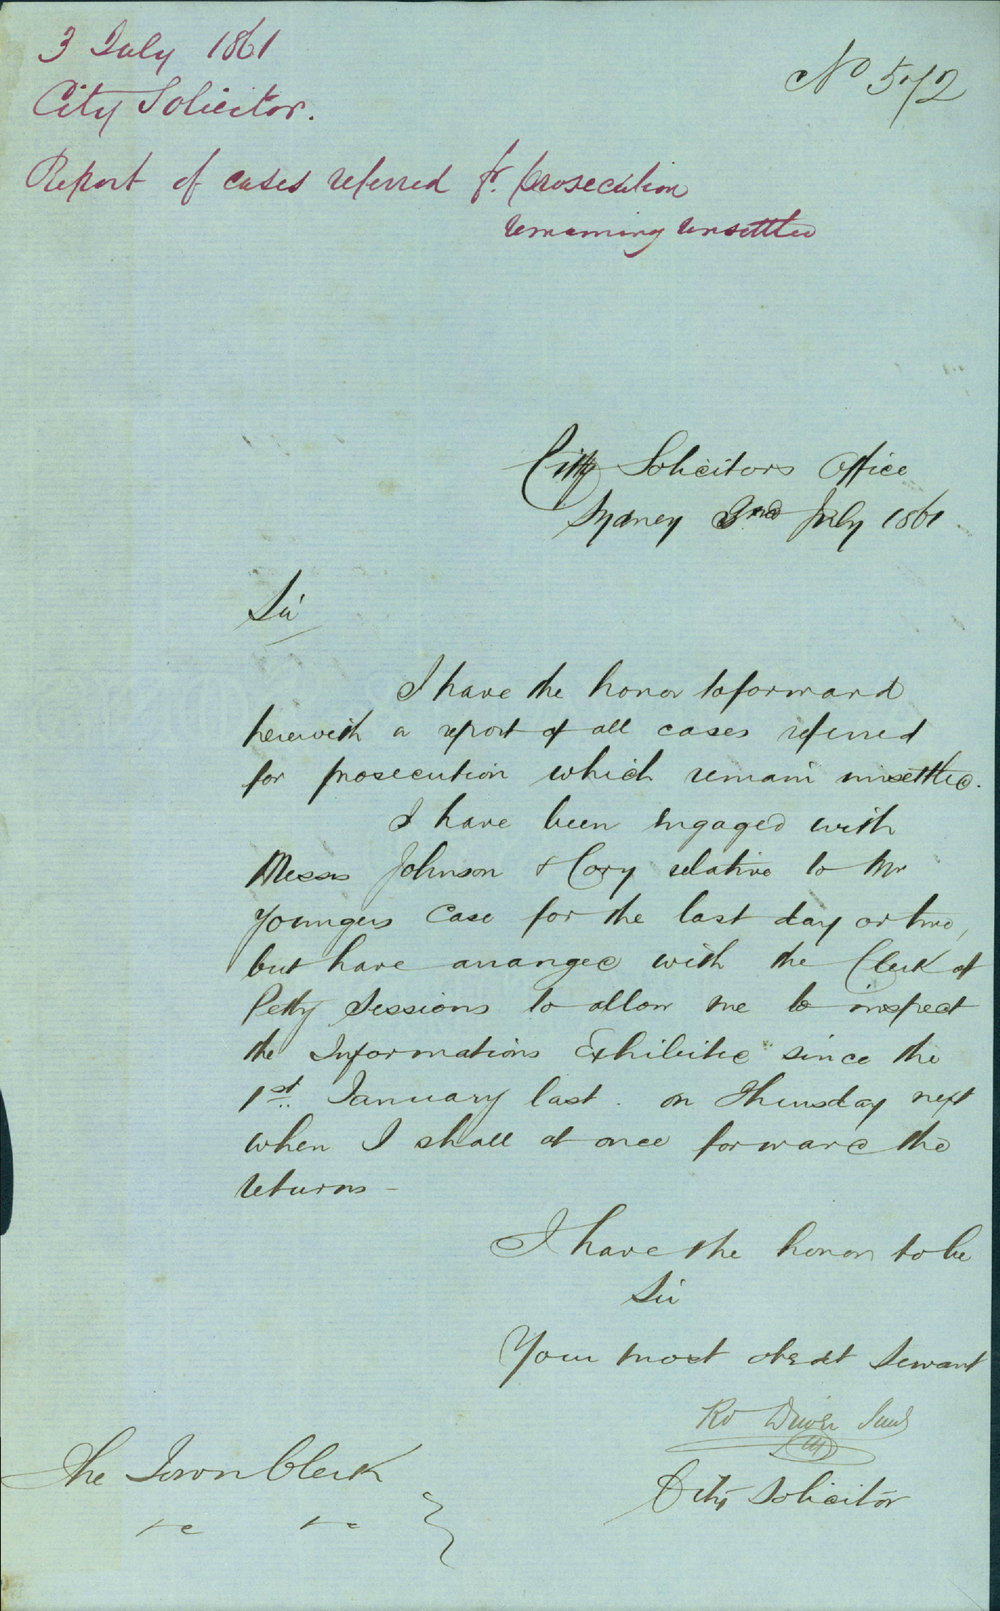 3 July 1861
No 572
City Solicitor.
Report of cases referred fr. prosecution
remaining unsettled
City Solicitors Office
Sydney 3rd July 1861
Sir
I have the honor to forward
herewith a report of all cases referred
for prosecution which remain unsettled.
I have been engaged with
Messrs Johnson & Cory relative to Mr
Youngers Case for the last day or two,
but have arranged with the Clerk of
Petty Sessions to allow me to inspect
the Informations Exhibited since the
1st. January last. on Thursday next
when I shall at once forward the
returns -
I have the honor to be
Sir
Your most obedt Servant
Rd Driver Junr
City Solicitor
The Town Clerk